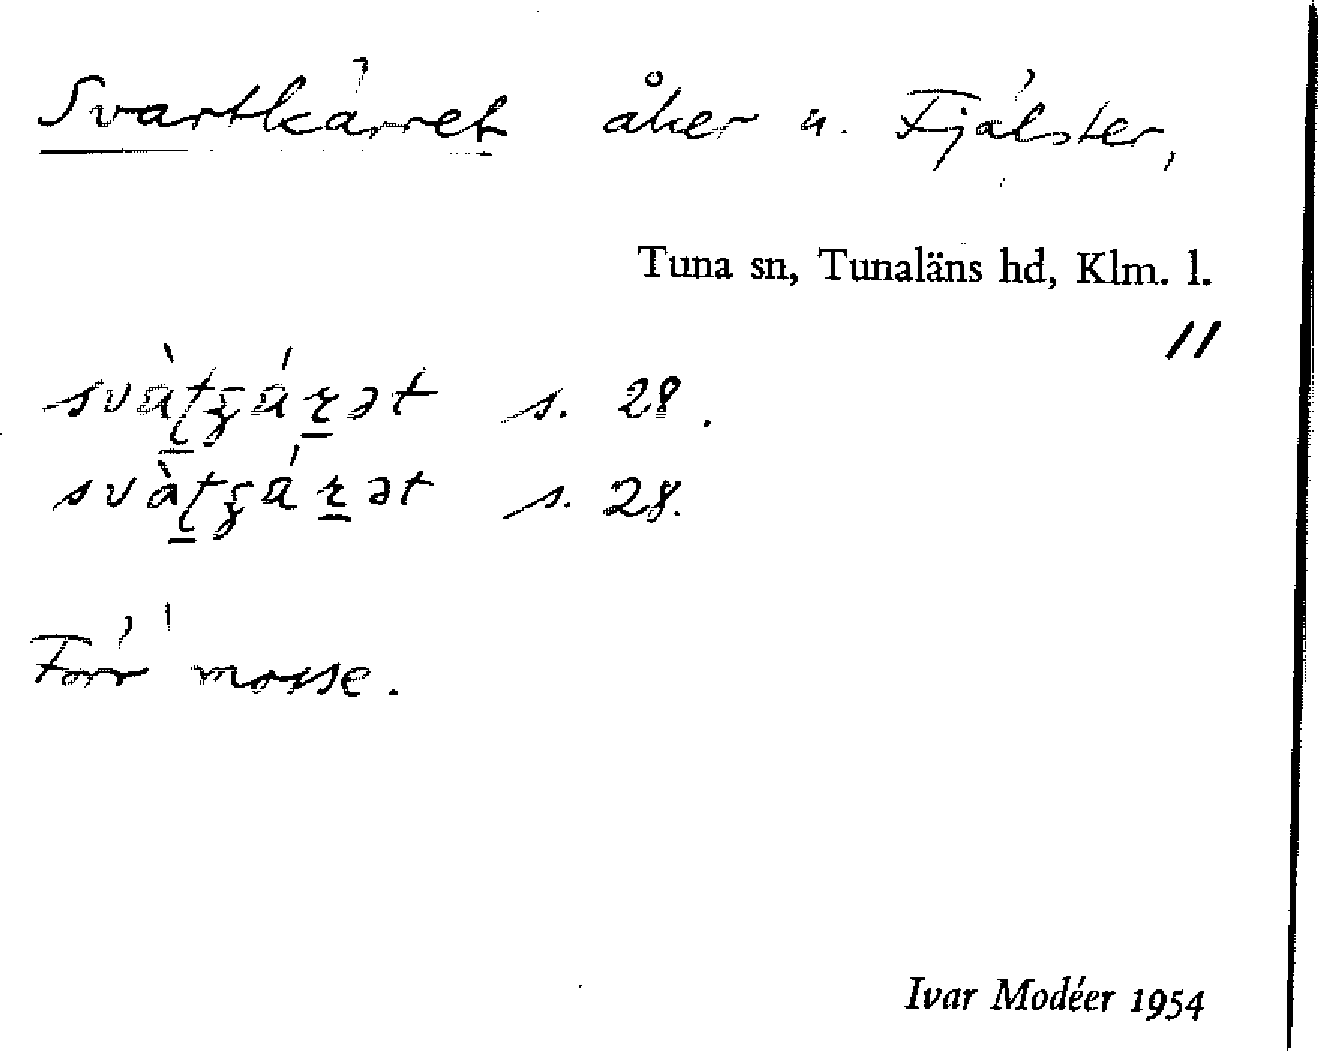 Svartkärret åker u. Fjälster,
Tuna sn, Tunaläns hd, Klm. l.
11
s. 28.
s. 28.
Förr mosse.
Ivar Modéer 1954